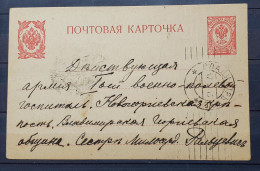 ПОЧТОВАЯ КАРТОЧКА
Дѣйствующая
армія 7ой военно-полевой
госпиталь. Новогеоргіевская крѣ-
пость, Владимірская Георгіевская
община. Сестрѣ Милосерд.